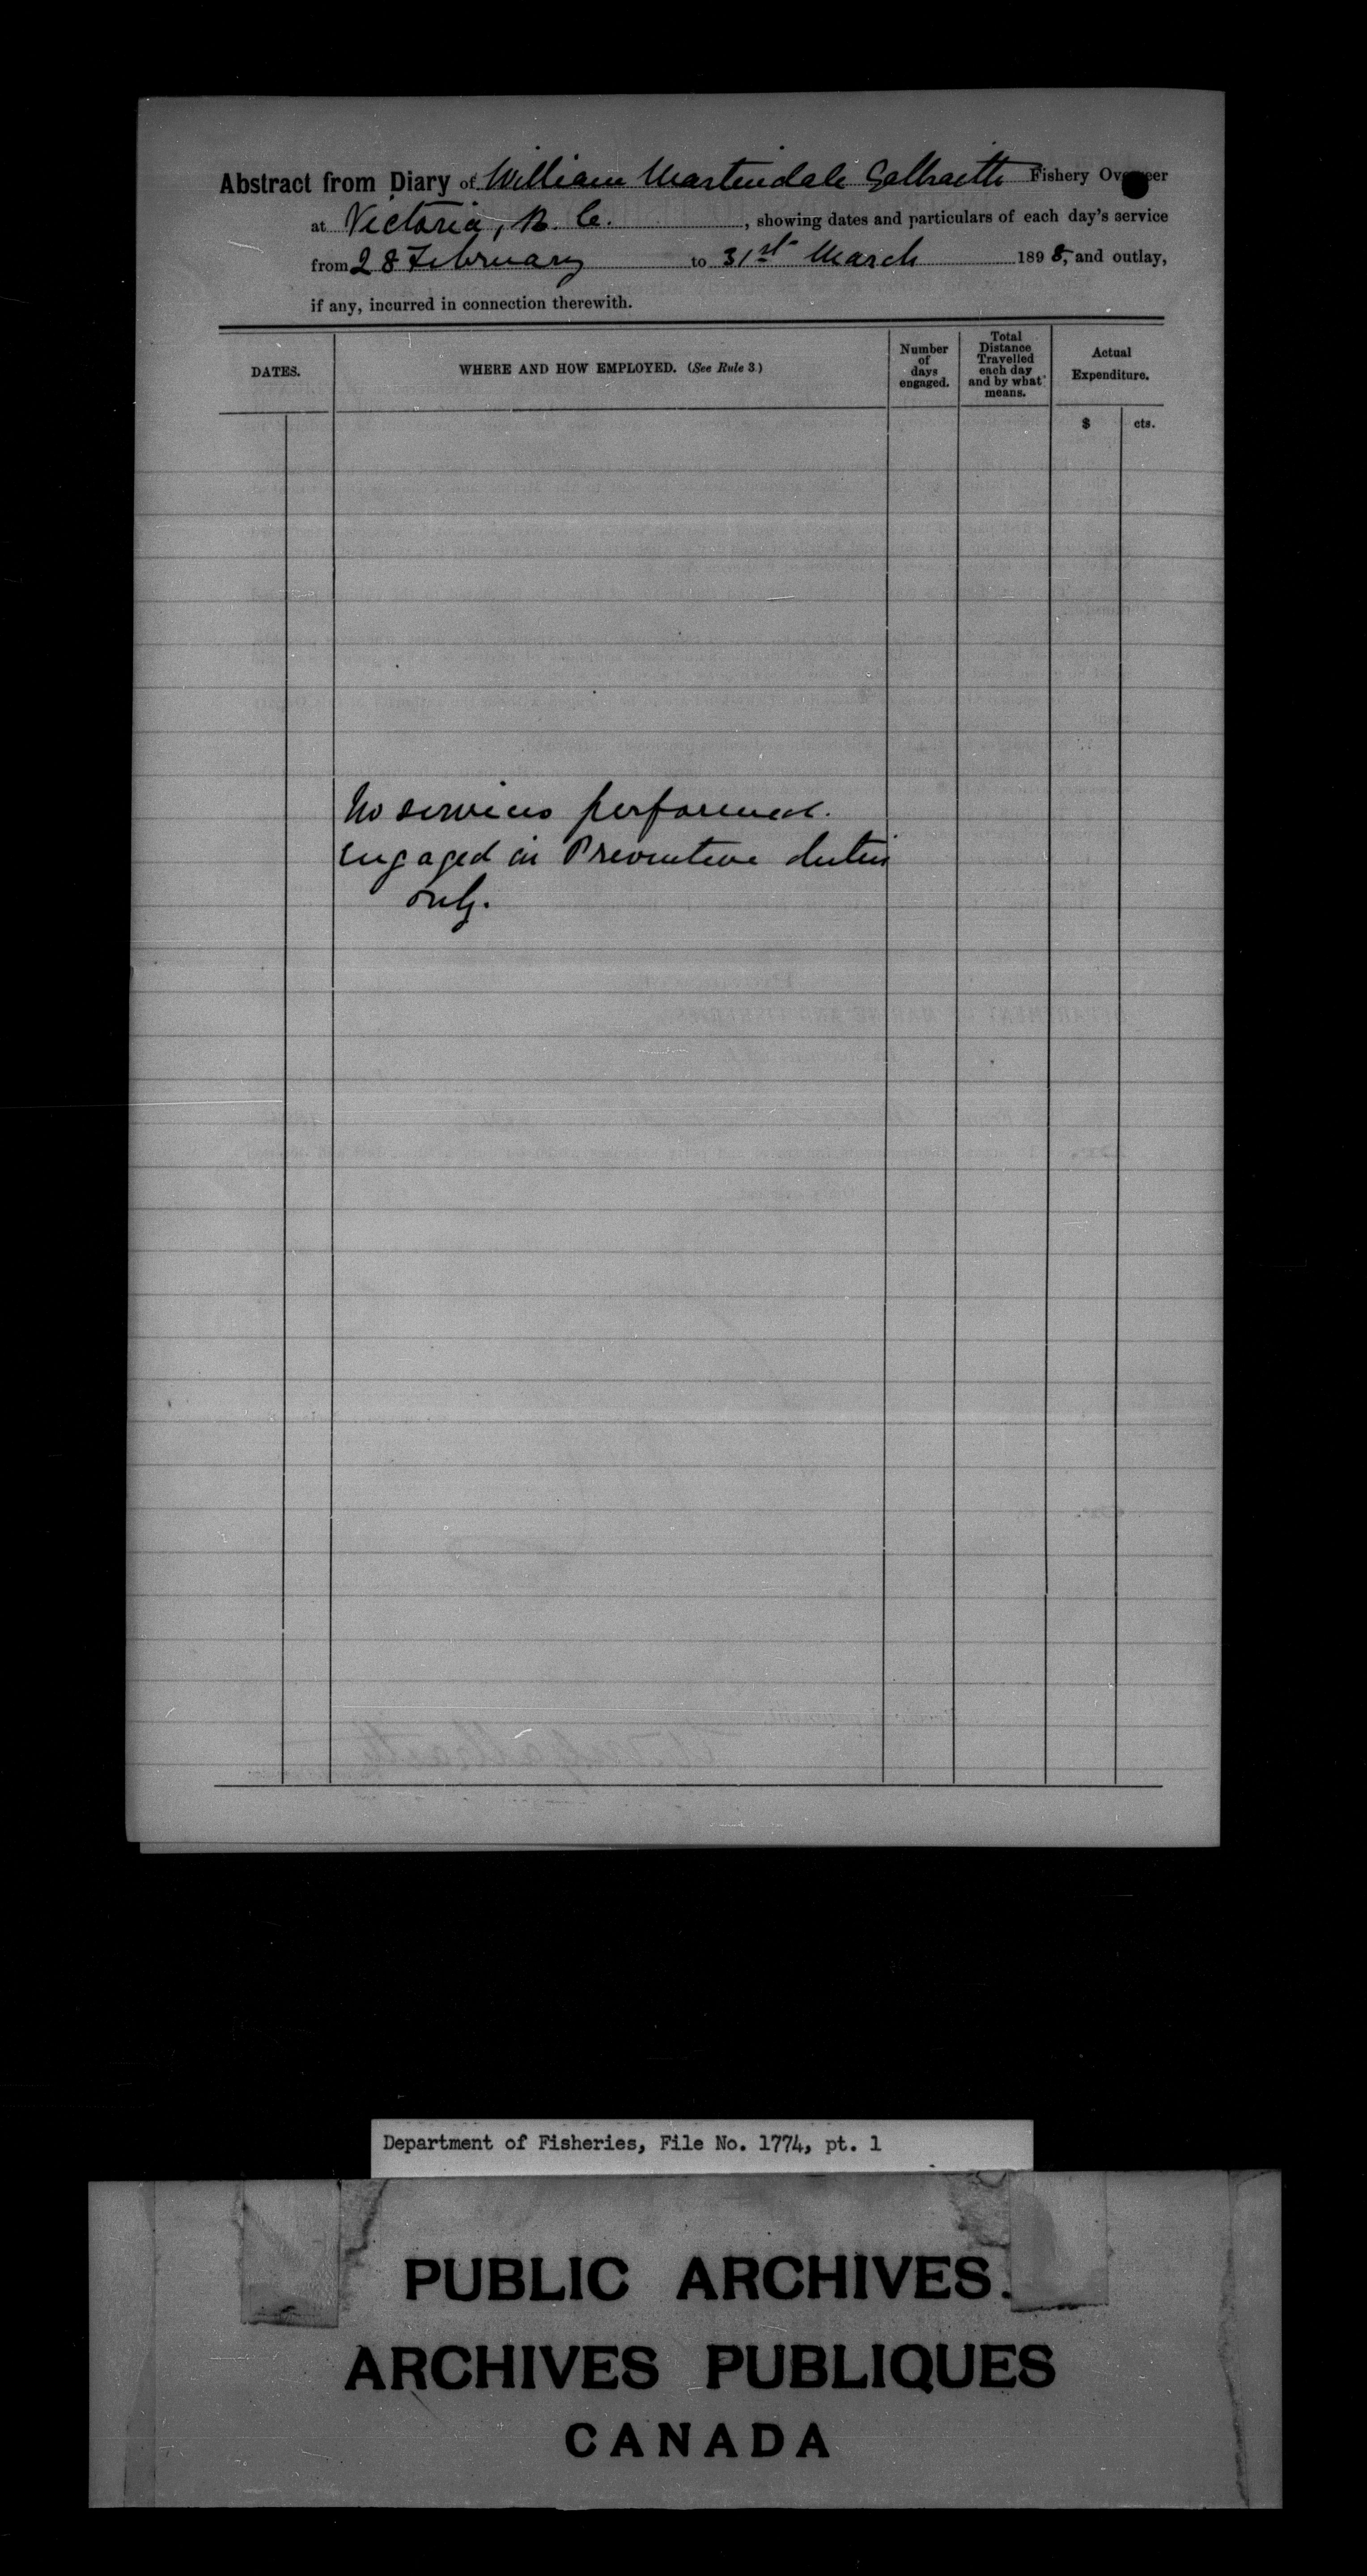 Abstract from Diary of William Martindale Galbraith Fishery Overseer
at Victoria, B. C. , showing dates and particulars of each day's service
from 28 February to 31st March 1898, and outlay,
if any, incurred in connection therewith.
DATES.
WHERE AND HOW EMPLOYED. (See Rule 3.)
Number of days engaged.
Total Distance Travelled each day and by what means.
Actual Expenditure.
$ cts.
No services performed.
Engaged in Preventive duties
only.
Department of Fisheries, File No. 1774, pt. 1
PUBLIC ARCHIVES
ARCHIVES PUBLIQUES
CANADA